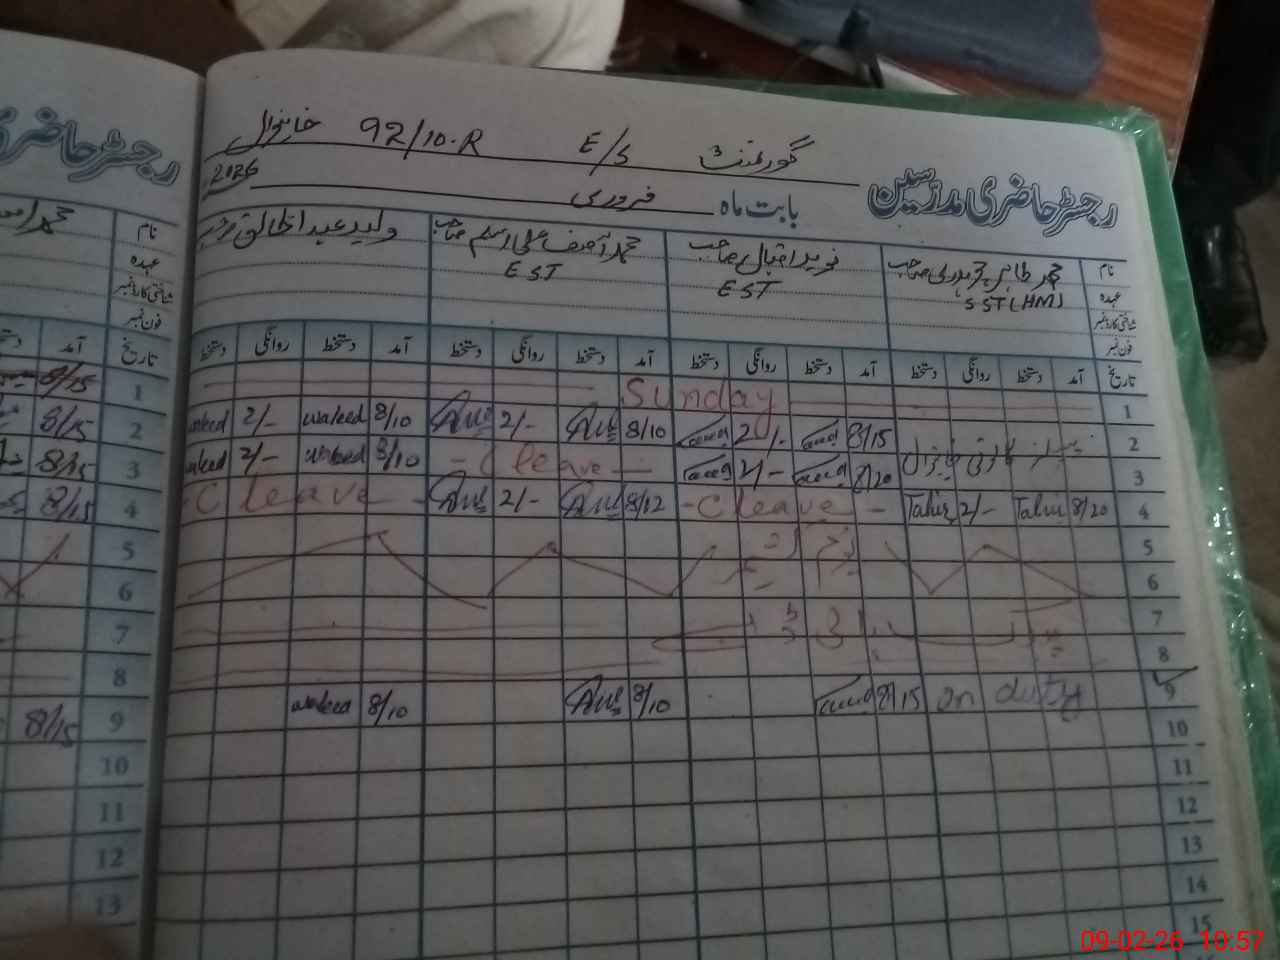 رجسٹر حاضری مدرسین گورنمنٹ E/S 92/10-R خانیوال
بابت ماہ فروری 2026
نام محمد طاہر چوہدری صاحب نوید اقبال صاحب محمد آصف علی اسلم صاحب ولید عبدالخالق
عہدہ SST (HM) EST EST
شناختی کارڈ نمبر
فون نمبر
تاریخ آمد دستخط روانگی دستخط آمد دستخط روانگی دستخط آمد دستخط روانگی دستخط آمد دستخط روانگی دستخط
1 Sunday
2 8/15 2/- 8/10 2/- 8/10 waleed 2/- waleed
3 8/20 2/- C leave 8/10 waleed 2/- waleed
4 8/20 Tahir 2/- Tahir C leave 8/12 2/- C leave
5
6
7
8
9 on duty 8/15 8/10 8/10 waleed
10
11
12
13
14
15
رجسٹر حاضری
نام
عہدہ
شناختی کارڈ نمبر
فون نمبر
تاریخ آمد
1 8/15
2 8/15
3 8/15
4 8/15
5
6
7
8
9 8/15
10
11
12
13
09-02-26 10:57